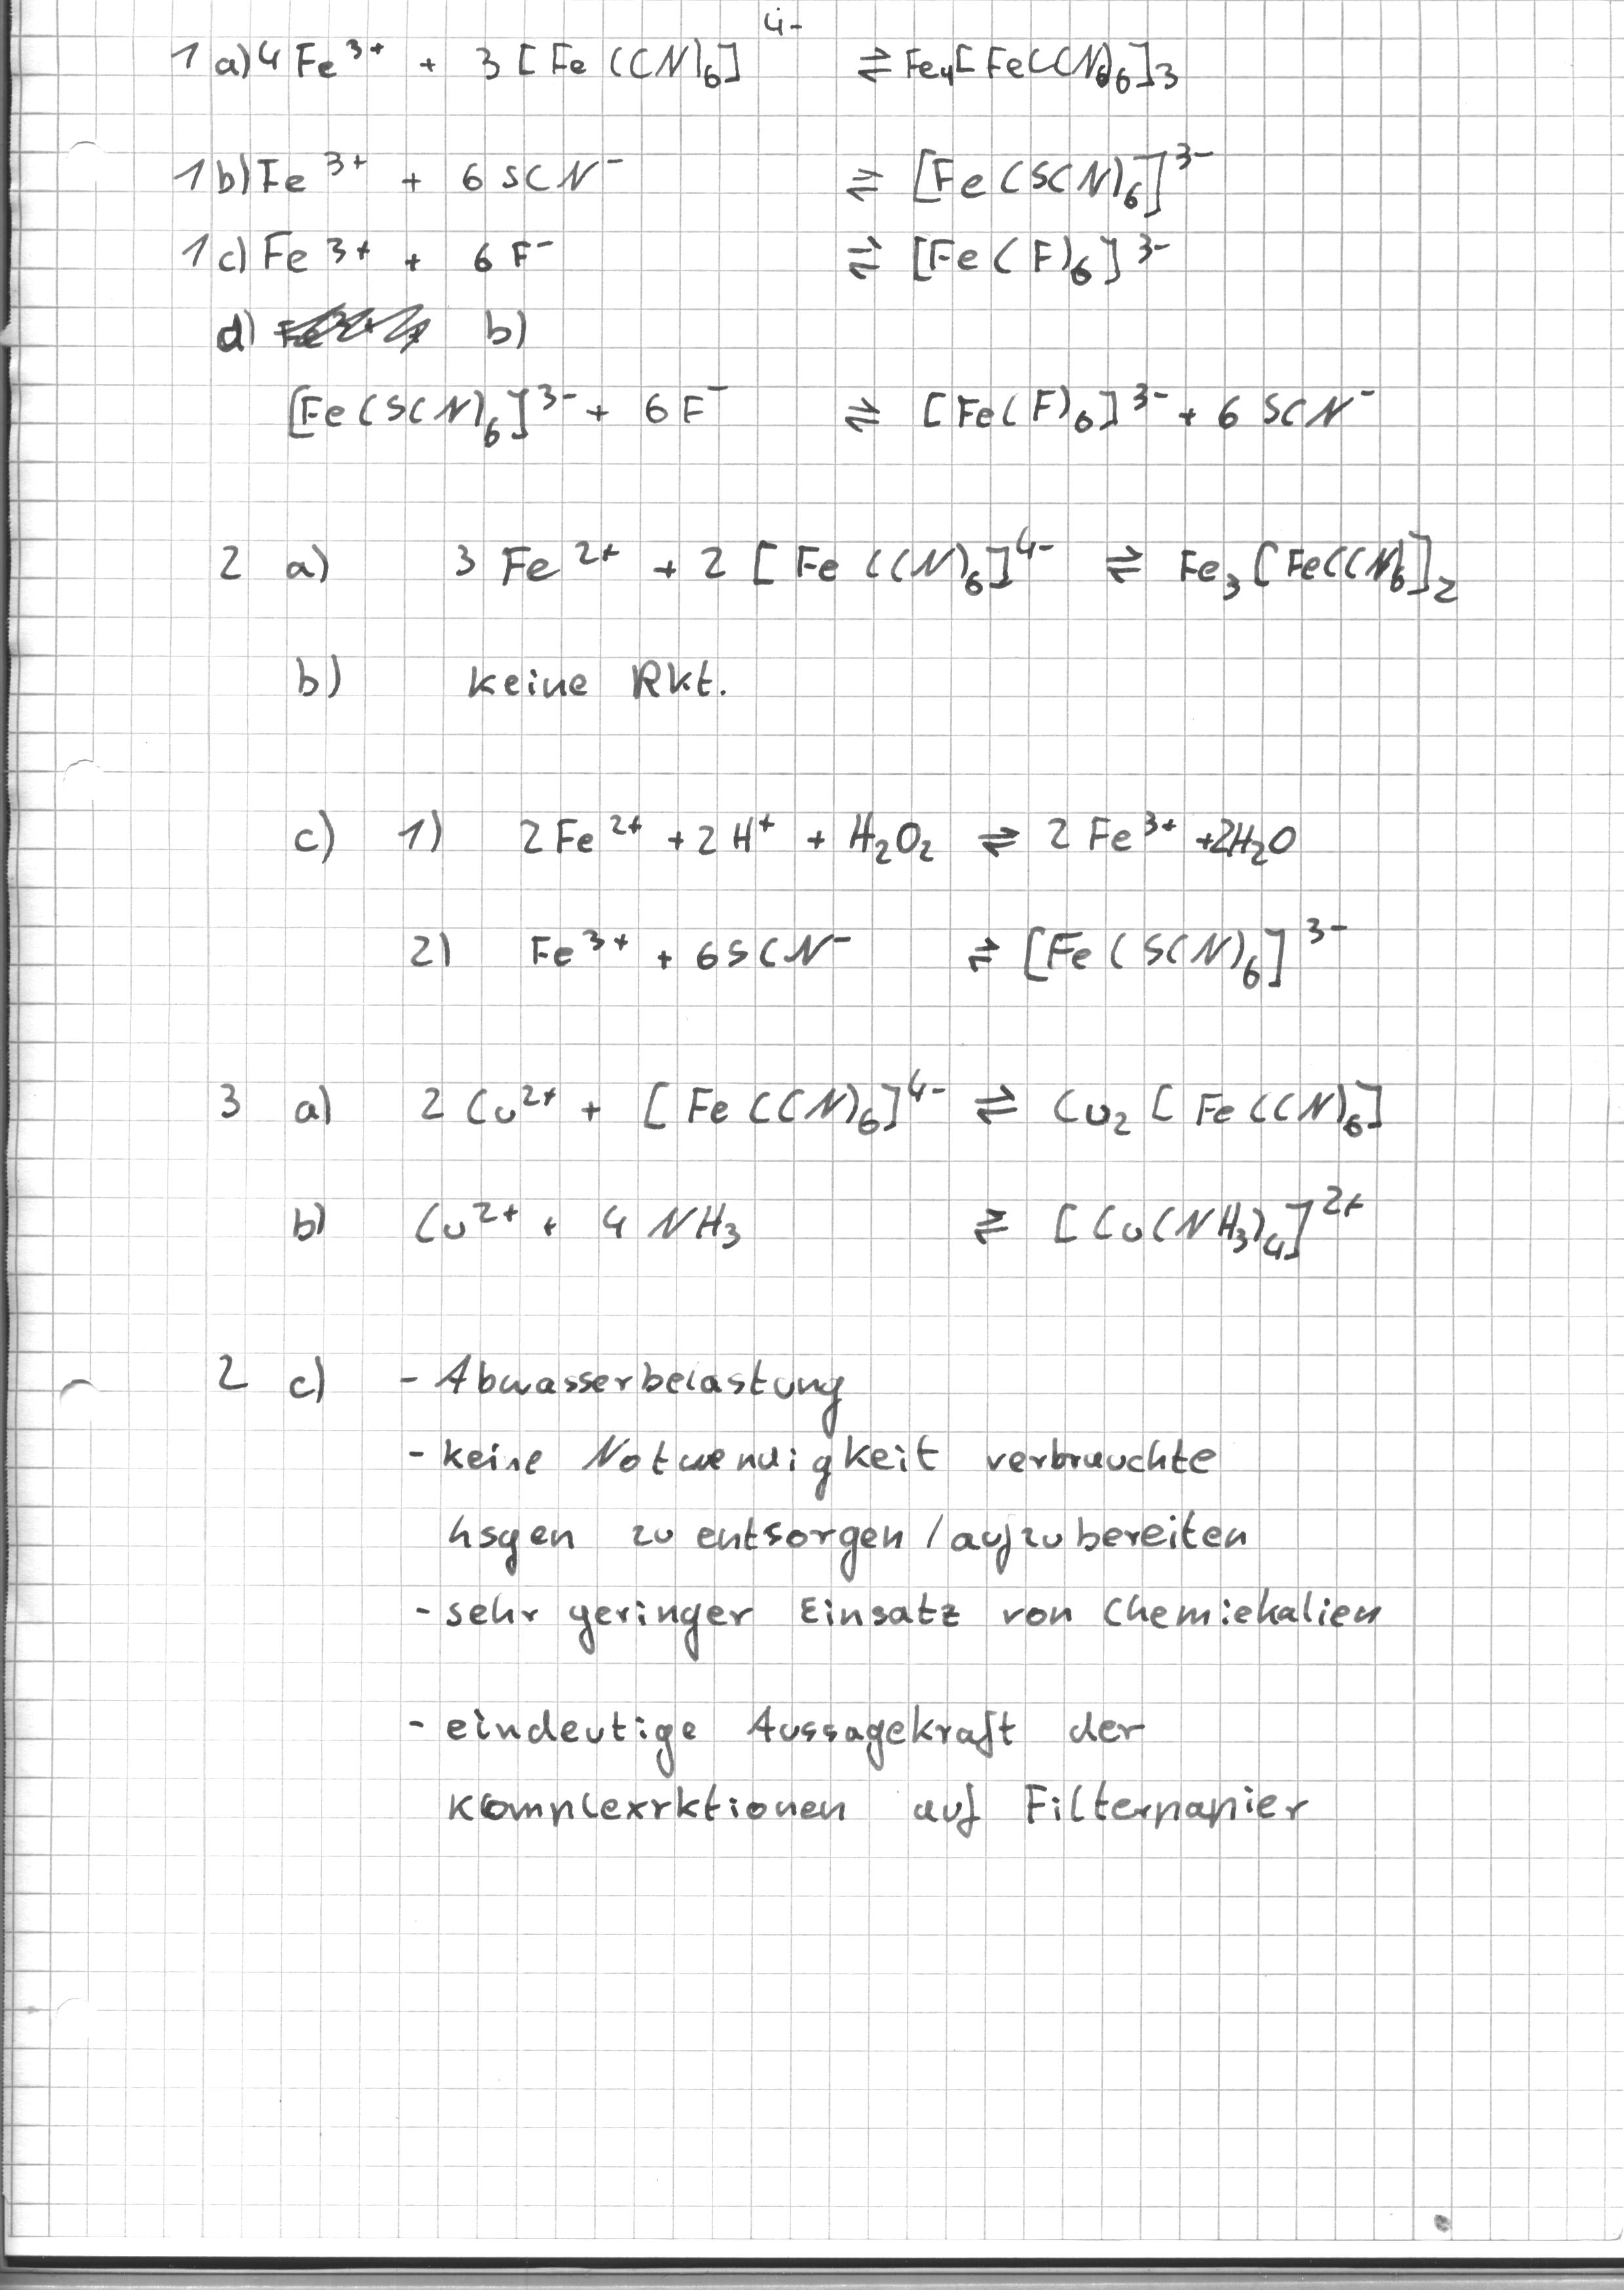 1 a) 4 Fe³⁺ + 3 [Fe(CN)₆]⁴⁻ ⇌ Fe₄[Fe(CN)₆]₃
1 b) Fe³⁺ + 6 SCN⁻ ⇌ [Fe(SCN)₆]³⁻
1 c) Fe³⁺ + 6 F⁻ ⇌ [Fe(F)₆]³⁻
d) b)
[Fe(SCN)₆]³⁻ + 6 F⁻ ⇌ [Fe(F)₆]³⁻ + 6 SCN⁻
2 a) 3 Fe²⁺ + 2 [Fe(CN)₆]⁴⁻ ⇌ Fe₃[Fe(CN)₆]₂
b) keine Rkt.
c) 1) 2 Fe²⁺ + 2 H⁺ + H₂O₂ ⇌ 2 Fe³⁺ + 2H₂O
2) Fe³⁺ + 6 SCN⁻ ⇌ [Fe(SCN)₆]³⁻
3 a) 2 Cu²⁺ + [Fe(CN)₆]⁴⁻ ⇌ Cu₂[Fe(CN)₆]
b) Cu²⁺ + 4 NH₃ ⇌ [Cu(NH₃)₄]²⁺
2 c) - Abwasserbelastung
- keine Notwendigkeit verbrauchte
Lsgen zu entsorgen / aufzubereiten
- sehr geringer Einsatz von Chemiekalien
- eindeutige Aussagekraft der
Komplexrktionen auf Filterpapier